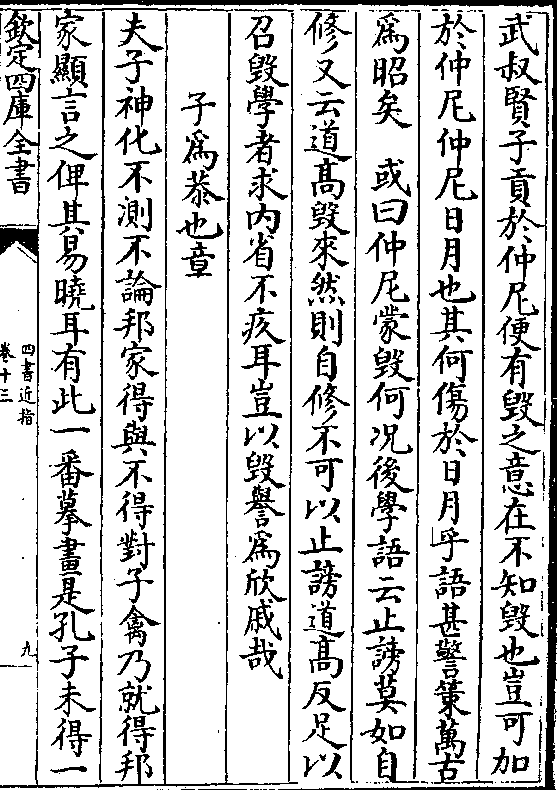 武叔賢子貢於仲尼便有毁之意在不知毁也豈可加
於仲尼仲尼日月也其何傷於日月乎語甚警策萬古
爲昭矣　或曰仲尼蒙毁何况後學語云止謗莫如自
修又云道髙毁來然則自修不可以止謗道髙反足以
召毁學者求内省不疚耳豈以毁譽爲欣戚哉
子爲恭也章
夫子神化不測不論邦家得與不得對子禽乃就得邦
家顯言之俾其易曉耳有此一番摹畫是孔子未得一
欽定四庫全書
四書近指
卷十三
九